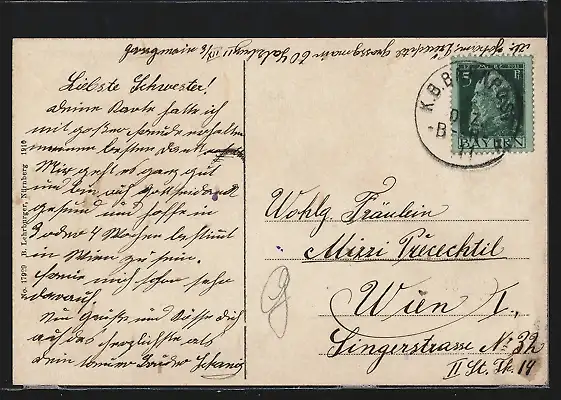 Liebste Schwester!
Deine Karte hatte ich
mit großer Freude erhalten
meinen besten Dank
Mir geht es ganz gut
und bin auf Gott sei dank
gesund und hoffe in
3 oder 4 Wochen bestimt
in Wien zu sein.
freue mich schon sehr
darauf.
Nun Grüße und Küsse Dich
auf das herzlichste als
dein treuer Bruder
No. 17929 B. Lehrburger, Nürnberg 1910
5 Pf.
BAYERN
K.B.B
Wohlg Fräulein
Mizzi
Wien I,
Singerstrasse Nr 32
II St. Th. 14